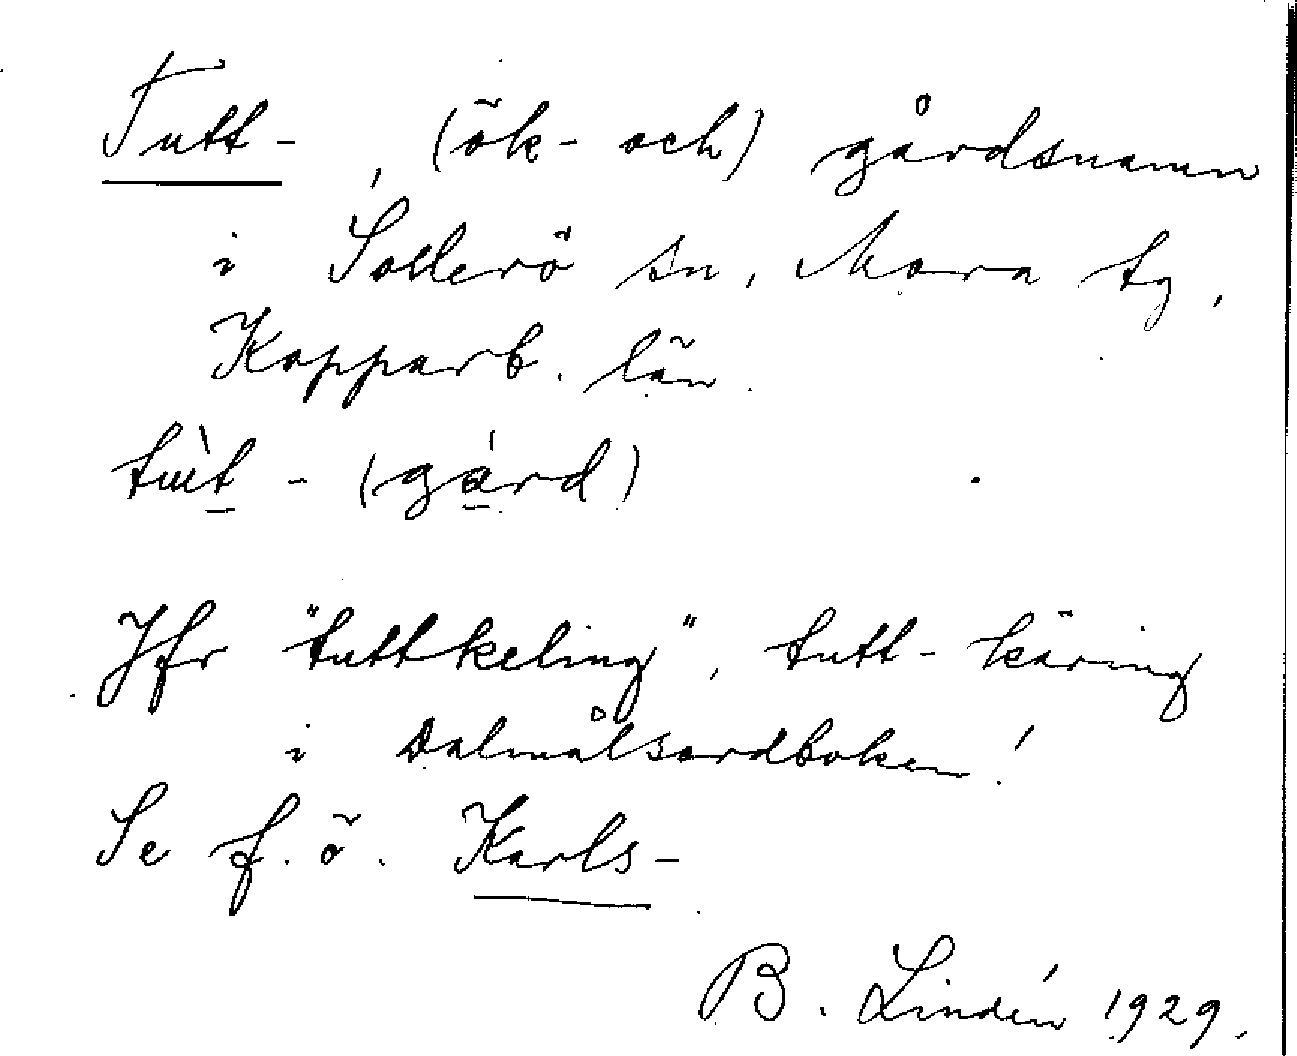 Tutt- , (ök- och) gårdsnamn
i Sollerö sn, Mora tg,
Kopparb. län.
tùt - (gá̱rd)
Jfr "tuttkeling", tutt-käring
i Dalmålsordboken!
Se f. ö. Karls-
B. Lindén 1929.